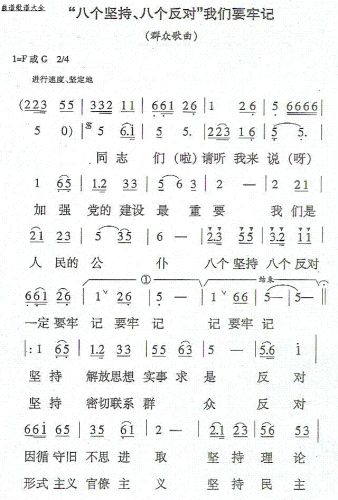 曲谱歌谱大全
“八个坚持、八个反对”我们要牢记
(群众歌曲)
1=F 或 G 2/4
进行速度、坚定地
(223 55 | 332 11 | 661 26 | 1 26 | 5 6666 |
5 0) | 5 6.1 | 5 5. | 2.1 6 16 | 5 5 |
同志 们(啦)请听 我来 说(呀)
1 65 | 1.2 33 | 5 6 3 | 2 - | 2 21 |
加 强 党的 建设 最 重 要 我 们是
21 23 | 5 35 | 6 - | 2.3 55 | 3.2 11 |
人 民的 公 仆 八个 坚持 八个 反对
① 结束
661 26 | 1 26 | 5 - | 1 66 | 5 - | 5 - |
一定 要牢 记 要牢 记 记 要牢 记
|: 1 65 | 1.2 33 | 55 63 | 5 - | 5.6 1 |
坚 持 解放 思想 实事 求 是 反 对
坚 持 密切 联系 群 众 反 对
661 65 | 35 61 | 2 - | 2.1 23 | 56 53 |
因循 守旧 不思 进 取 坚 持 理 论
形式 主义 官僚 主 义 坚 持 民 主